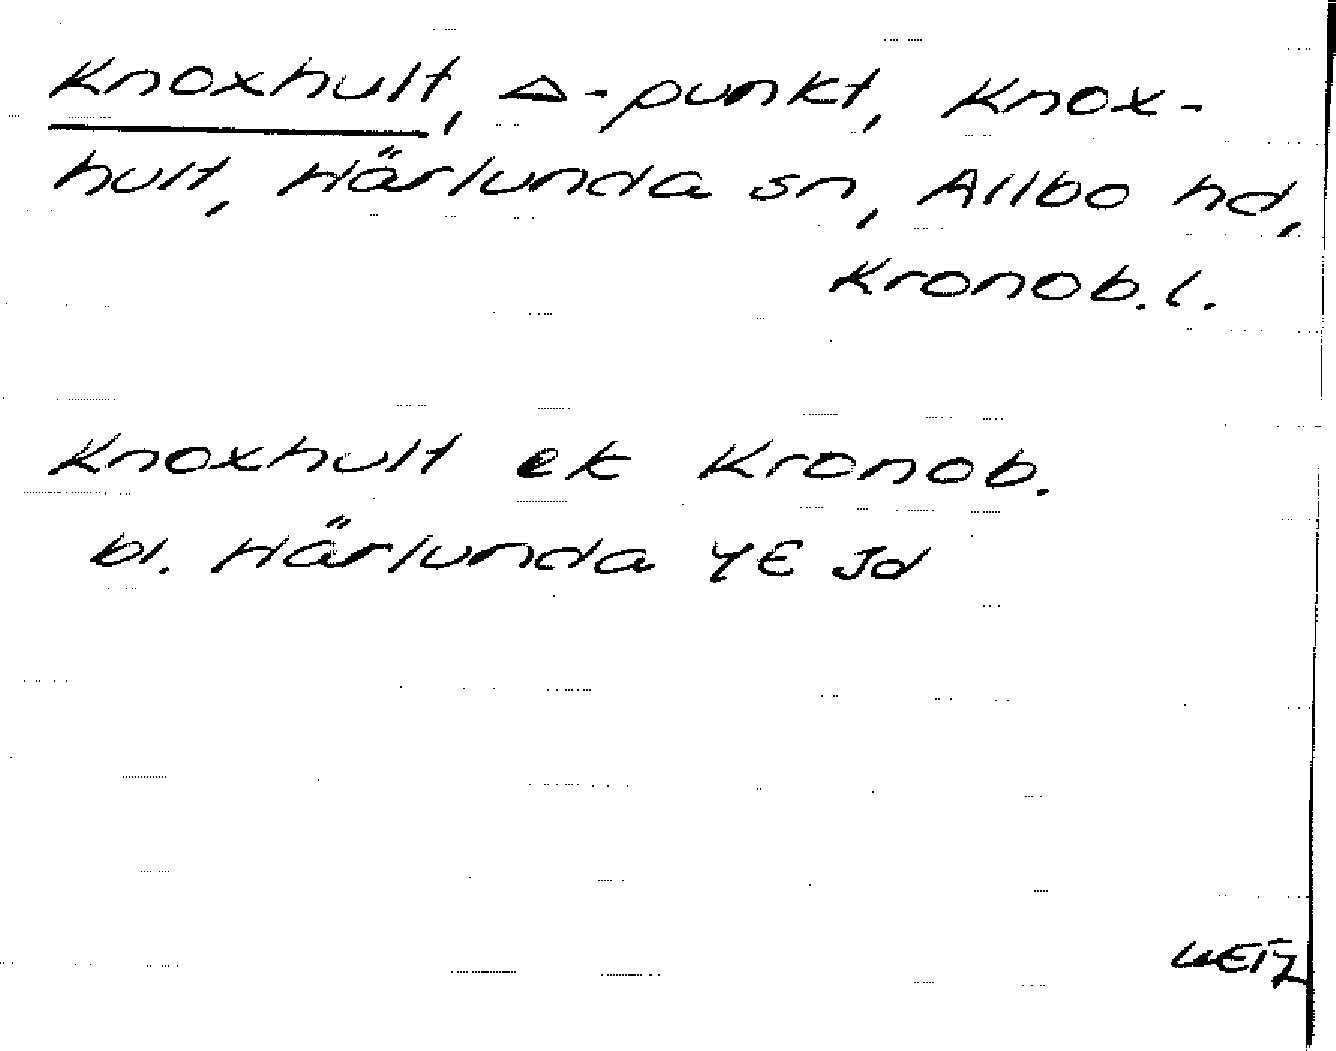 Knoxhult, △-punkt, Knox-
hult, Härlunda sn, Allbo hd,
Kronob. l.
Knoxhult ek Kronob.
bl. Härlunda 4E Jd